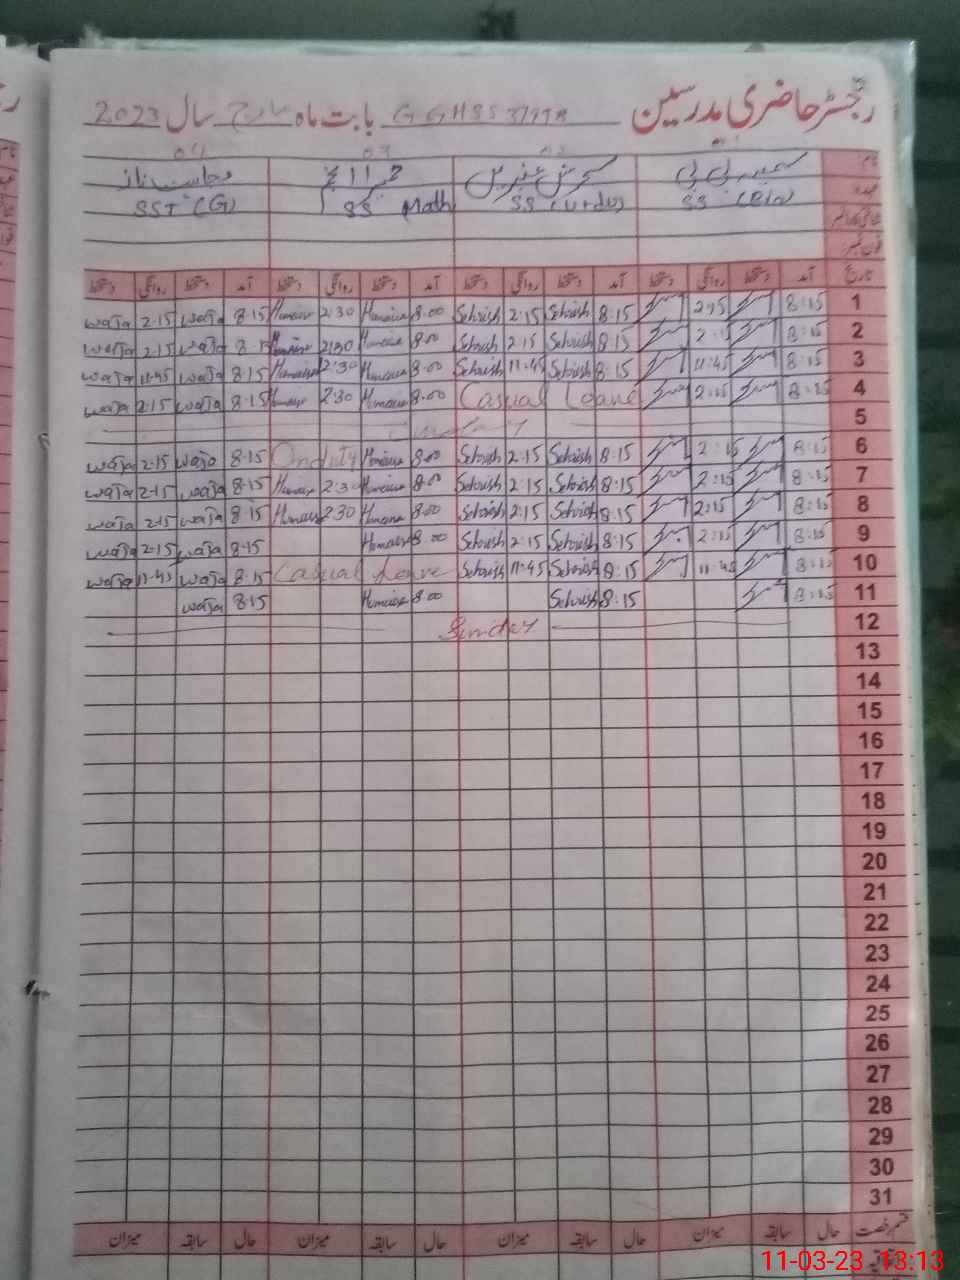 رجسٹر حاضری مدرسین G GHSS 37NB بابت ماہ مارچ سال 2023
نام
عہدہ SS (Bio) SS (Urdu) SS Math SST (G)
تاریخ آمد دستخط روانگی دستخط آمد دستخط روانگی دستخط آمد دستخط روانگی دستخط آمد دستخط روانگی دستخط
1 8:15 2:15 8:15 Sehrish 2:15 Sehrish 8:00 Humaira 2:30 Humaira 8:15 waja 2:15 waja
2 8:15 2:15 8:15 Sehrish 2:15 Sehrish 8:00 Humaira 2:30 Humaira 8:15 waja 2:15 waja
3 8:15 11:45 8:15 Sehrish 11:45 Sehrish 8:00 Humaira 2:30 Humaira 8:15 waja 11:45 waja
4 8:15 2:15 Casual Leave 8:00 Humaira 2:30 Humaira 8:15 waja 2:15 waja
5 Sunday
6 8:15 2:15 8:15 Sehrish 2:15 Sehrish 8:00 Humaira On duty 8:15 waja 2:15 waja
7 8:15 2:15 8:15 Sehrish 2:15 Sehrish 8:00 Humaira 2:30 Humaira 8:15 waja 2:15 waja
8 8:15 2:15 8:15 Sehrish 2:15 Sehrish 8:00 Humaira 2:30 Humaira 8:15 waja 2:15 waja
9 8:15 2:15 8:15 Sehrish 2:15 Sehrish 8:00 Humaira 8:15 waja 2:15 waja
10 8:15 11:45 8:15 Sehrish 11:45 Sehrish Casual Leave 8:15 waja 11:45 waja
11 8:15 8:15 Sehrish 8:00 Humaira 8:15 waja
12 Sunday
13
14
15
16
17
18
19
20
21
22
23
24
25
26
27
28
29
30
31
قسم رخصت حال سابقہ میزان حال سابقہ میزان حال سابقہ میزان حال سابقہ میزان
11-03-23 13:13